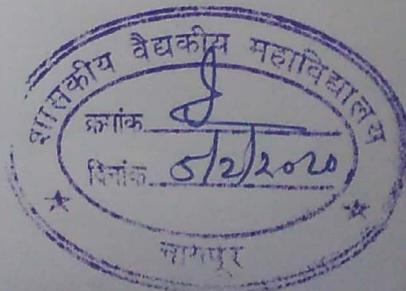 शासकीय वैद्यकीय महाविद्यालय
क्रमांक
दिनांक 5/2/2020
नागपूर